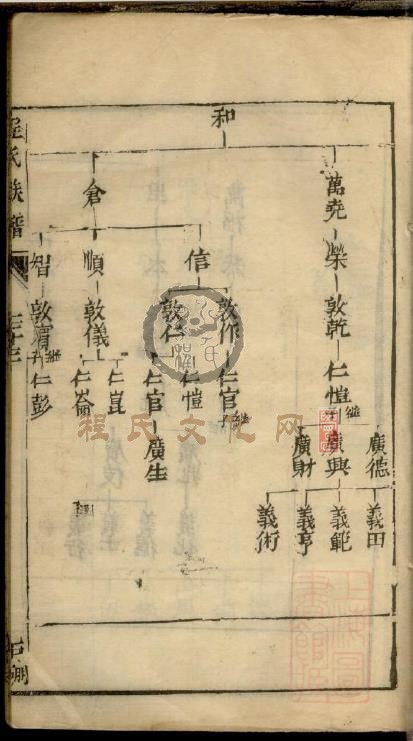 和
萬堯 榮 敦乾 仁愷 繼子 廣德 義田
廣興 義範
義亨
義術
廣財
倉
信 敦作 仁官 繼子
敦仁 仁愷
仁官 廣生
順 敦儀 仁崑
仁崙
智 敦賔 繼子 仁彭
程氏族譜
程氏文化网